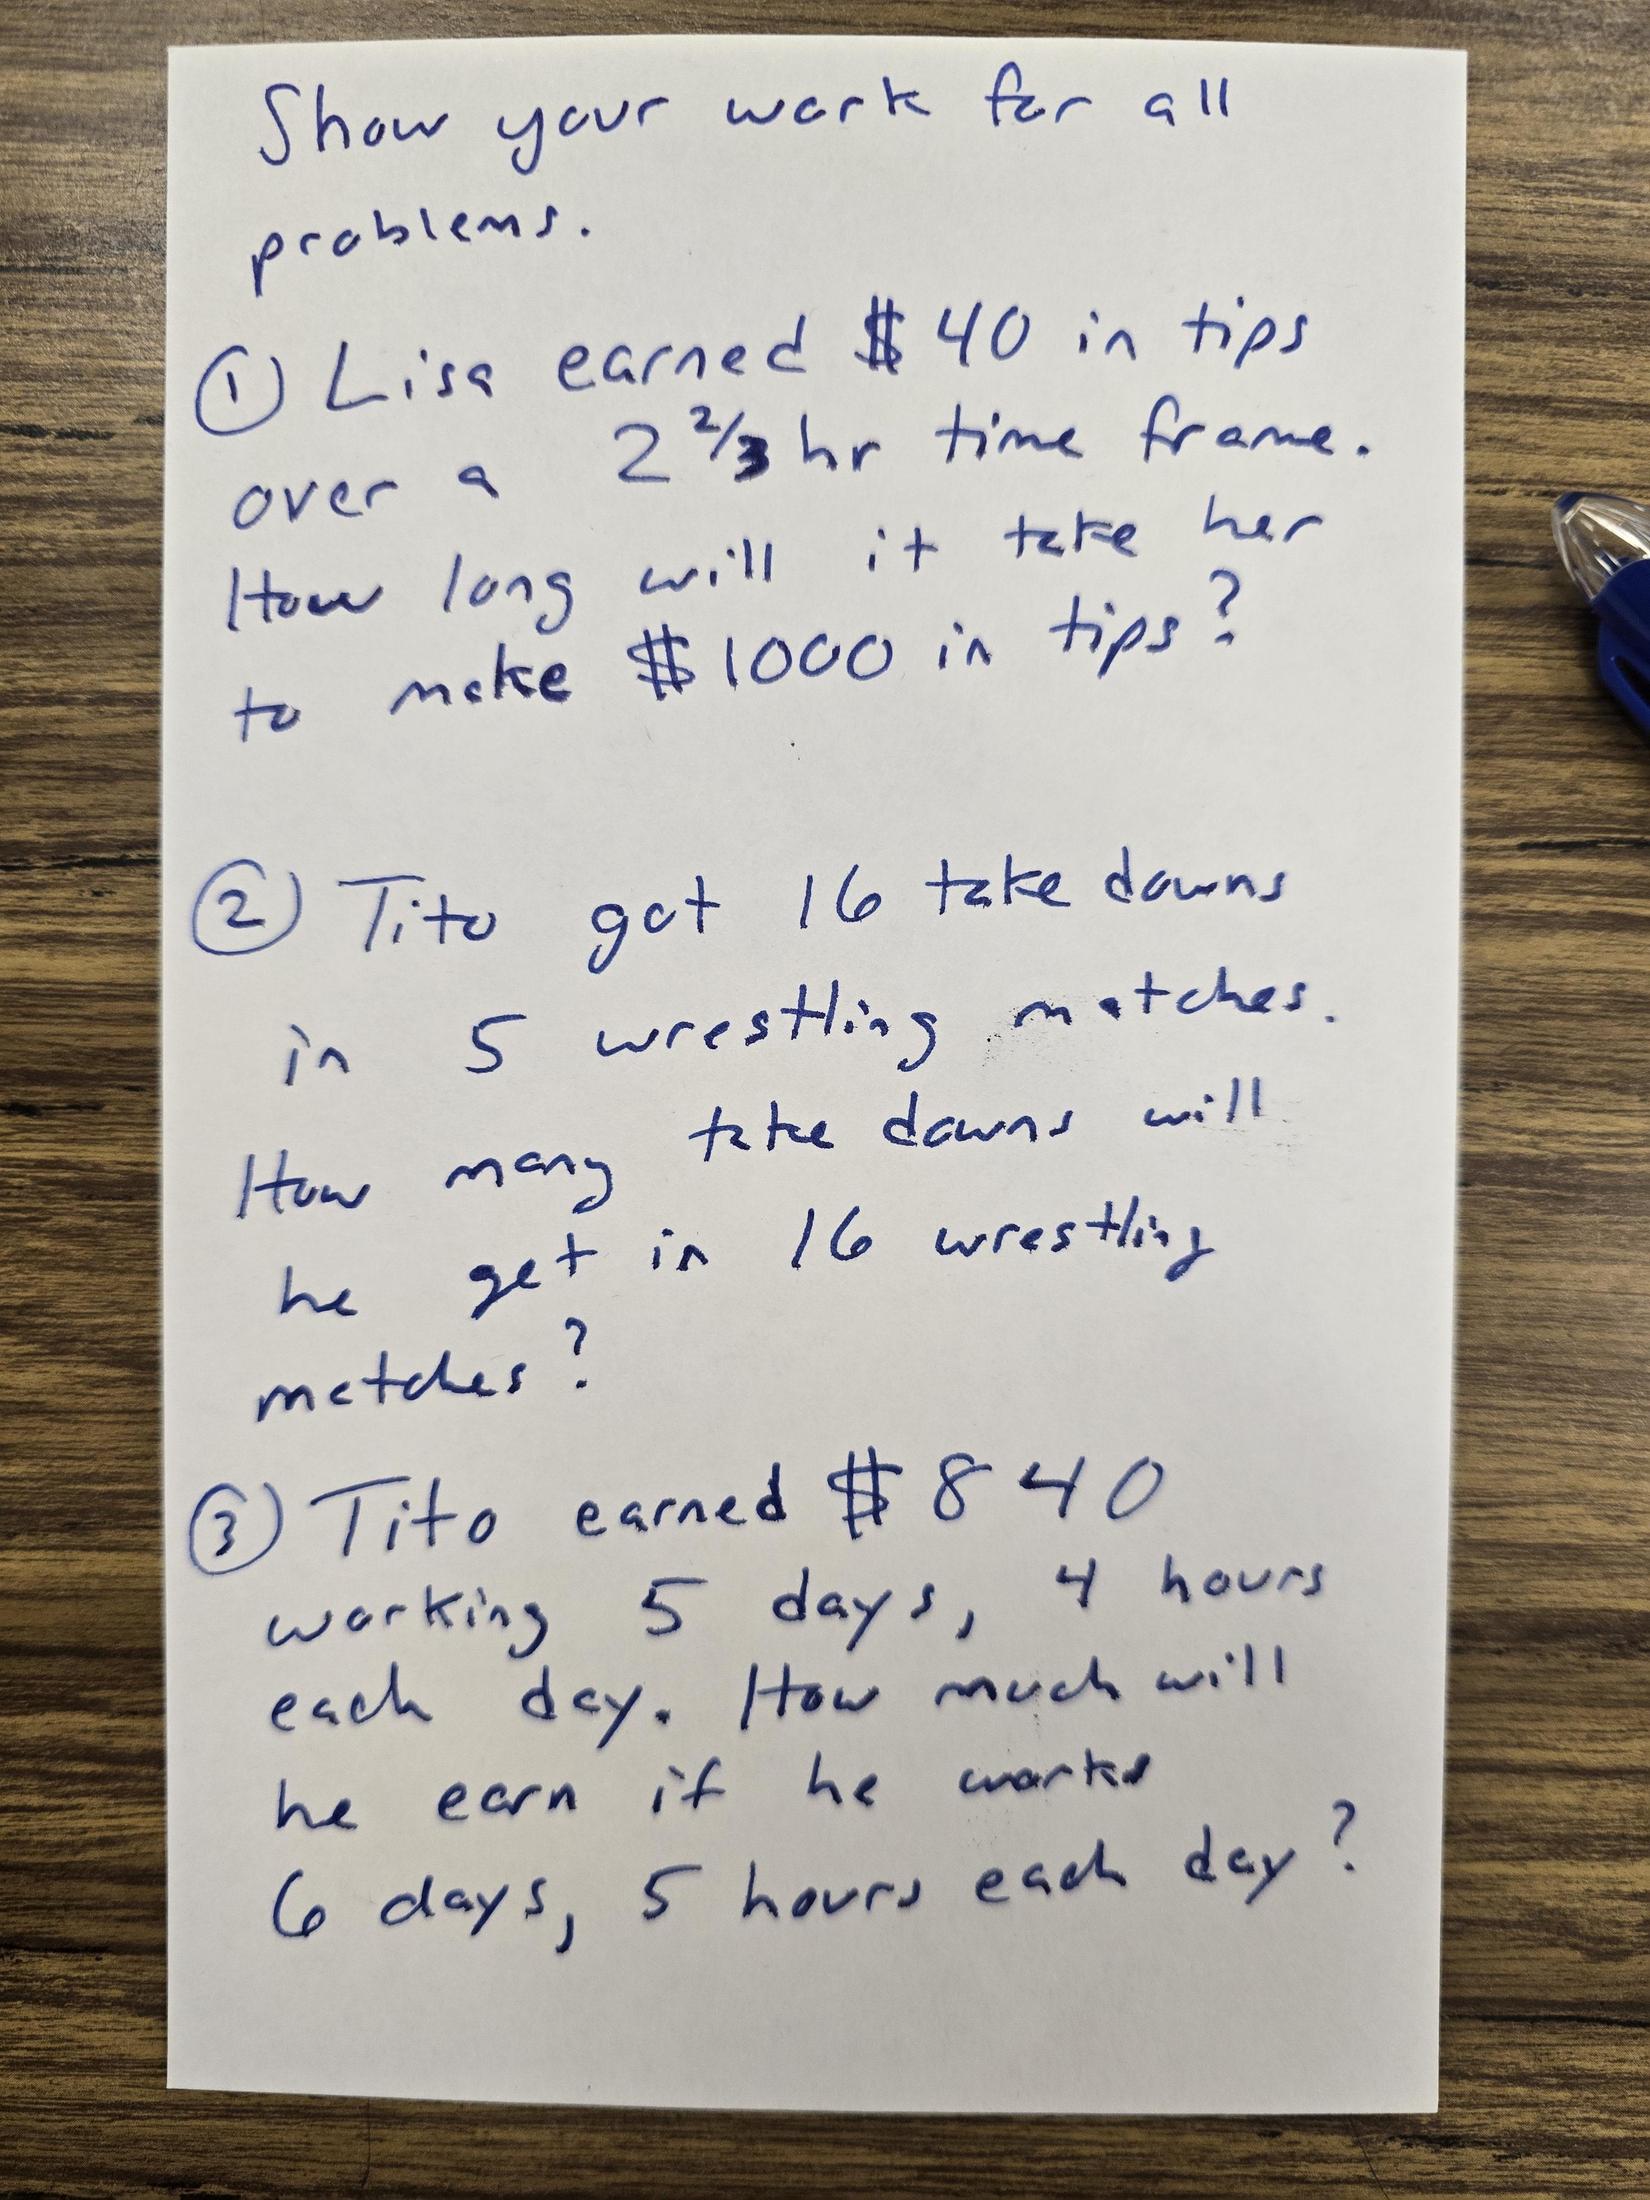 Show your work for all
problems.
① Lisa earned $40 in tips
over a 2 2/3 hr time frame.
How long will it take her
to make $1000 in tips?
② Tito got 16 take downs
in 5 wrestling matches.
How many take downs will
he get in 16 wrestling
matches?
③ Tito earned $840
working 5 days, 4 hours
each day. How much will
he earn if he works
6 days, 5 hours each day?